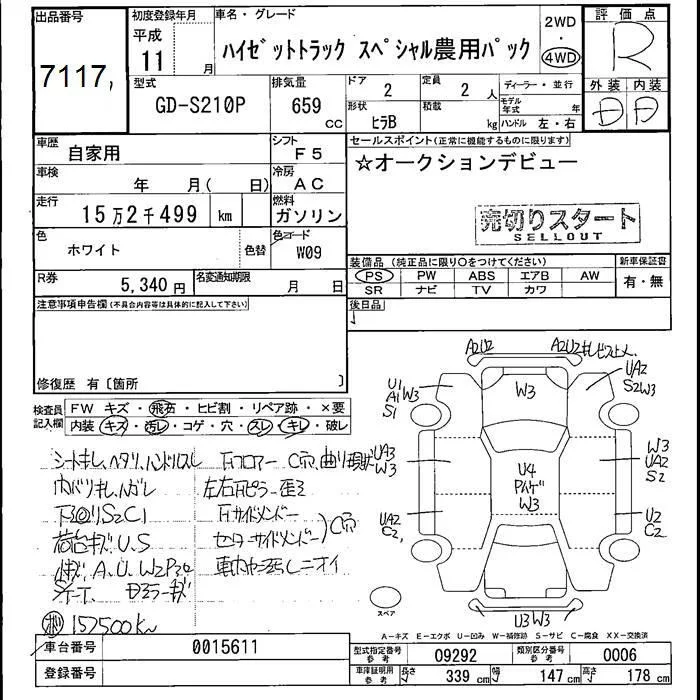 出品番号
7117,
初度登録年月
平成
11 月
車名・グレード
ハイゼットトラック スペシャル農用パック
2WD
・
4WD
評価点
R
型式
GD-S210P
排気量
659
CC
ドア
2
定員
2 人
形状
ヒラB
積載
kg
ディーラー・並行
モデル年式 年
ハンドル 左・右
外装 内装
D D
車歴
自家用
シフト
F5
車検
年 月( 日)
冷房
AC
走行
15万2千499 km
燃料
ガソリン
色
ホワイト
色替
色コード
W09
R券
5,340 円
名変通知期限
月 日
セールスポイント(正常に機能するものに限ります)
☆オークションデビュー
売切りスタート
SELLOUT
装備品 (純正品に限り○をつけてください)
PS PW ABS エアB AW
SR ナビ TV カワ
新車保証書
有・無
注意事項申告欄(不具合内容等は具体的に記入して下さい)
後日品
修復歴 有〔箇所 〕
検査員記入欄
FW キズ・飛石・ヒビ割・リペア跡・×要
内装 キズ・汚レ・コゲ・穴・スレ・キレ・破レ
シートキレ、ヘタリ、ハンドルスレ
内バリキレ、ハガレ
下回りS2C1
荷台キズ、U.S
A.U.W2
ミラーキズ
157500K
Fフロアー C穴、曲り現状
左右Fピラー歪ミ
Fサイドメンバー
センターサイドメンバー )C穴
車内ヤニ汚レニオイ
A2U2
A2U2
W3
UA2
S2W3
U1
A1 W3
S1
UA3
W3
U4
W3
W3
UA2
S2
UA2
C2
U2
C2
U3W3
スペア
A-キズ E-エクボ U-凹み W-補修跡 S-サビ C-腐食 XX-交換済
車台番号
0015611
登録番号
型式指定番号
参考
09292
類別区分番号
参考
0006
車庫証明用
参考
長さ 339 cm 幅 147 cm 高さ 178 cm